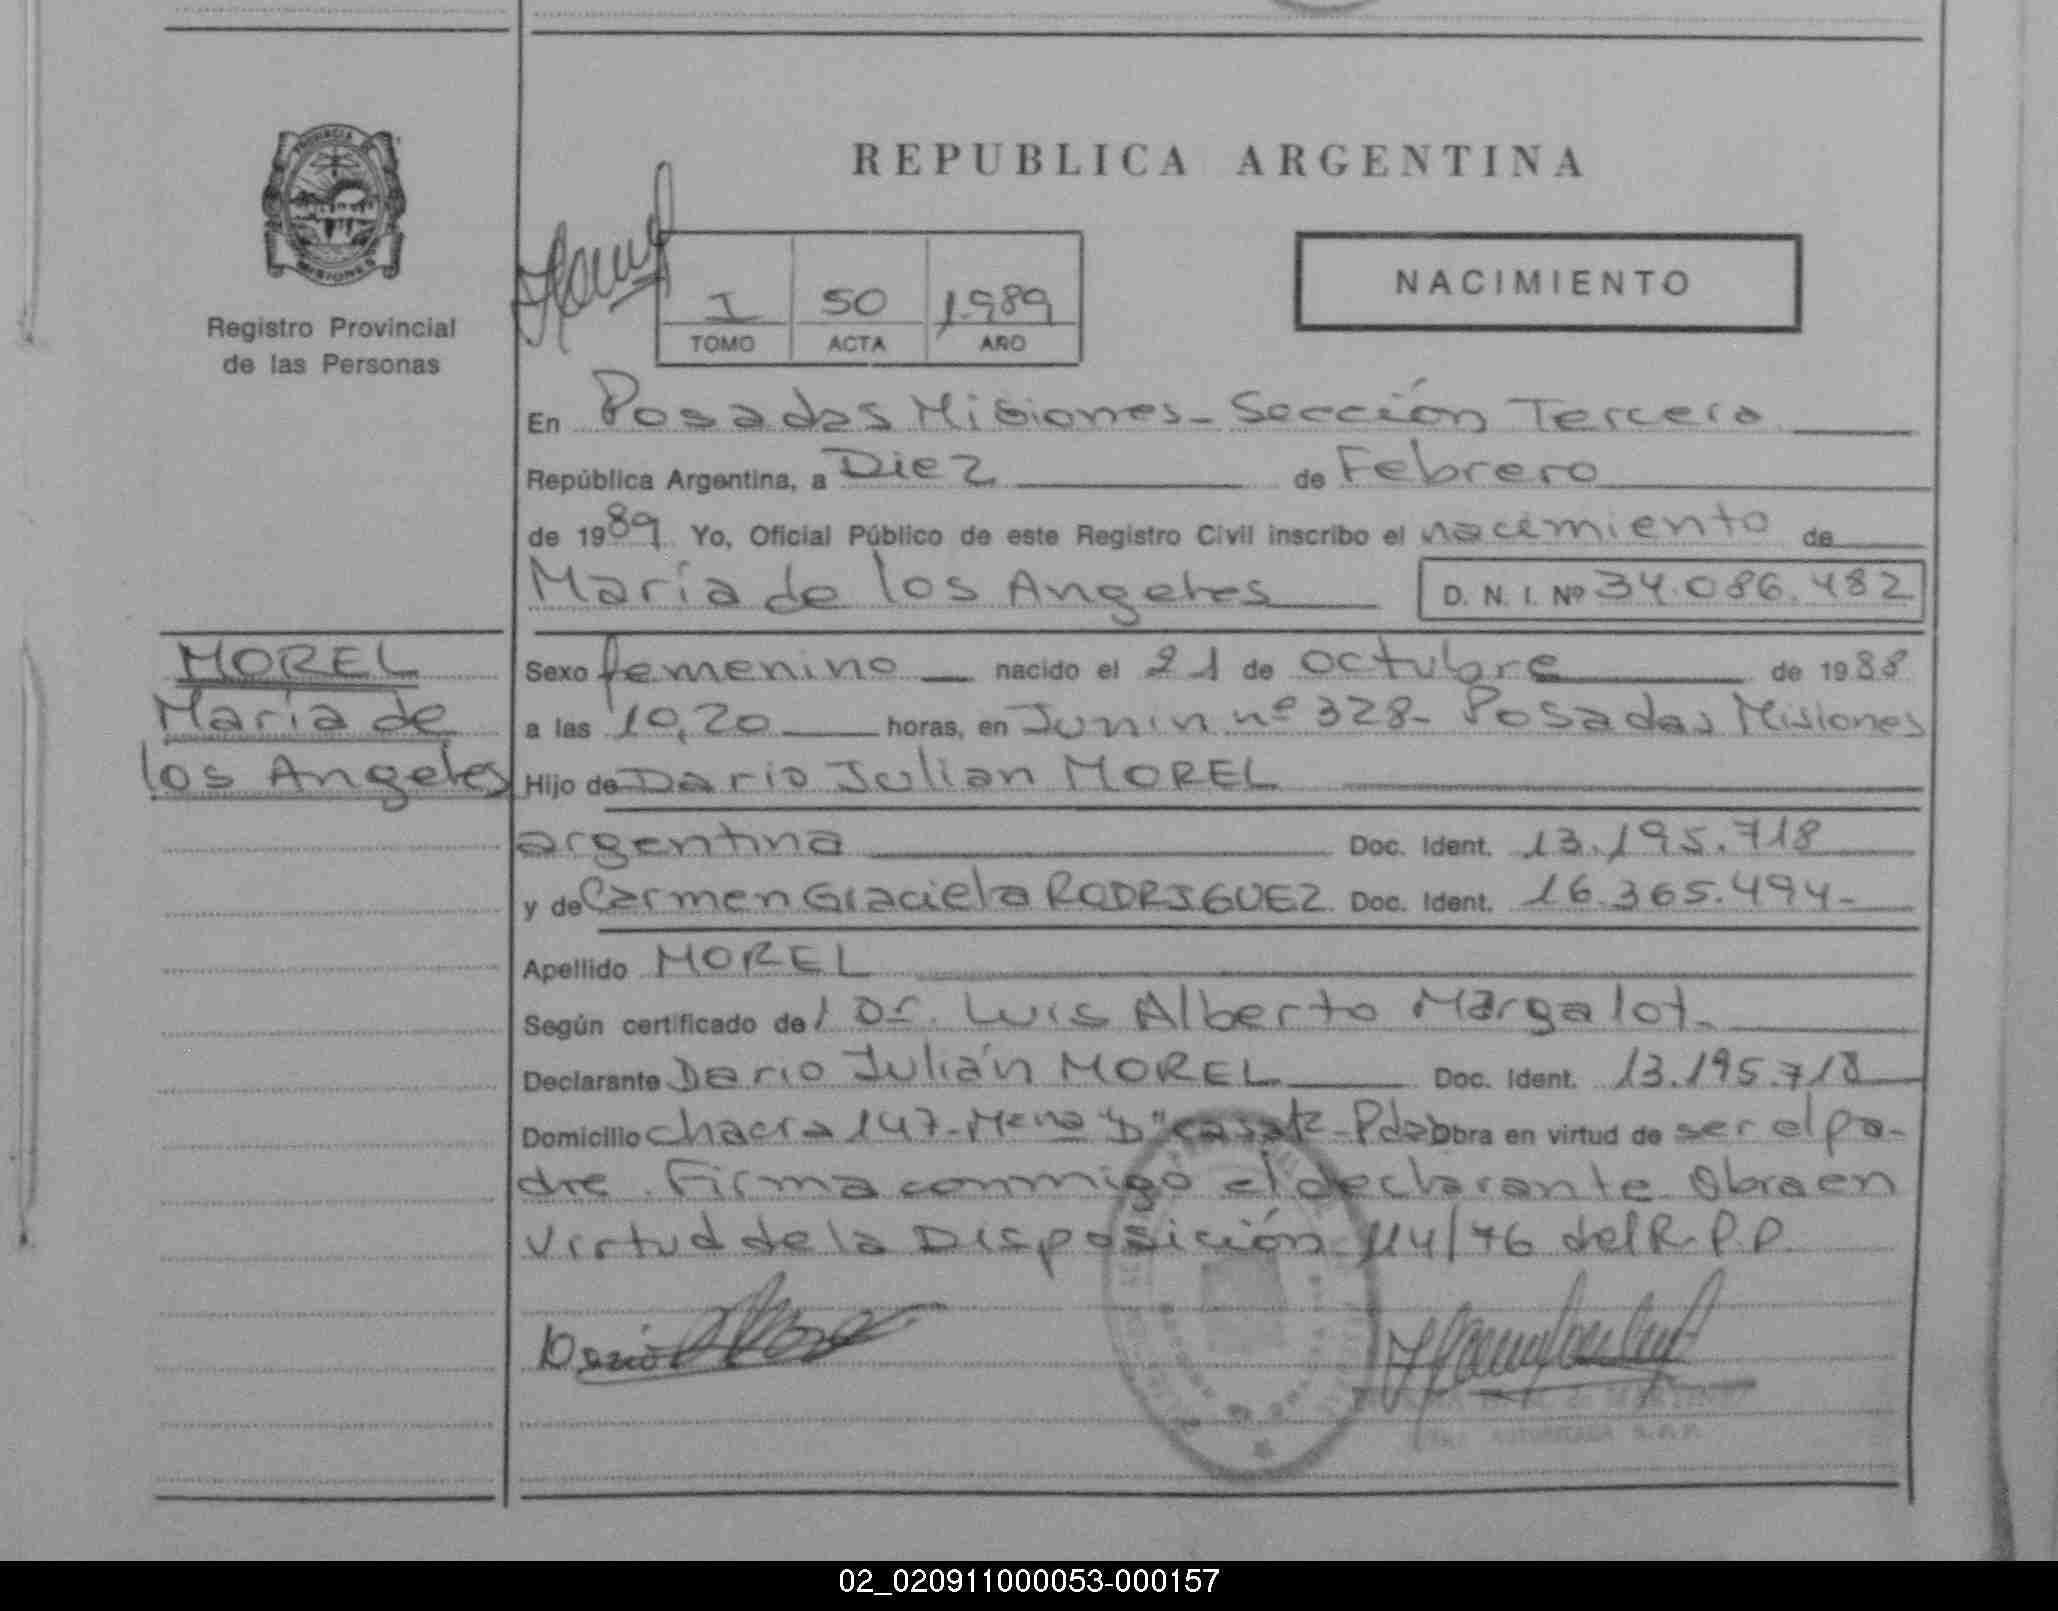 PROVINCIA
MISIONES
Registro Provincial
de las Personas
REPUBLICA ARGENTINA
I 50 1.989
TOMO ACTA AÑO
NACIMIENTO
En Posadas Misiones - Sección Tercera
República Argentina, a Diez de Febrero
de 1989 Yo, Oficial Público de este Registro Civil inscribo el nacimiento de
María de los Angeles D. N. I. Nº 34.086.482
MOREL
María de
los Angeles
Sexo femenino nacido el 21 de octubre de 1988
a las 10,20 horas, en Junin nº 328- Posadas Misiones
Hijo de Dario Julian MOREL
argentina Doc. Ident. 13.195.718
y de Carmen Graciela RODRIGUEZ Doc. Ident. 16.365.494-
Apellido MOREL
Según certificado del Dr. Luis Alberto Margalot.
Declarante Dario Julián MOREL Doc. Ident. 13.195.718
Domicilio chacra 147- Mzna "D" casa - Pdas Obra en virtud de ser el pa-
dre. Firma conmigo el declarante Obra en
virtud de la Disposición 114/76 del R.P.P.
Dario
AUTORIZADA
02_020911000053-000157